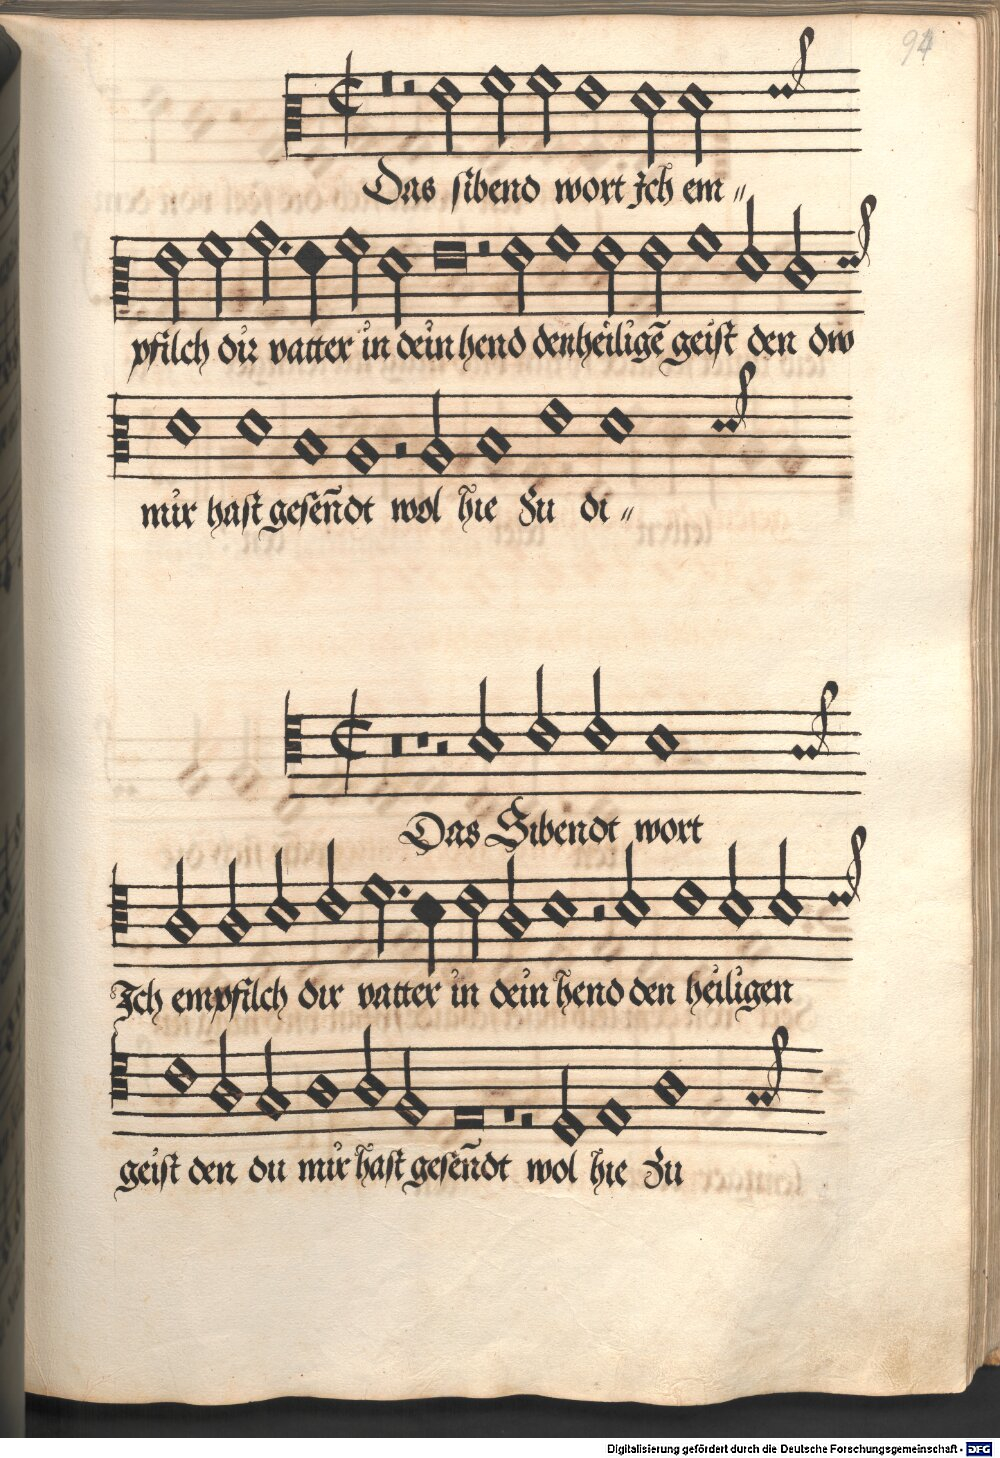 94
Das sibend wort Ich em〃
pfilch dir vatter in dein hend den heiligē geist den dw
mir hast gesēndt wol hie Zu di〃
Das Sibendt wort
Ich empfilch dir vatter in dein hend den heiligen
geist den du mir hast gesēndt wol hie Zu
Digitalisierung gefördert durch die Deutsche Forschungsgemeinschaft - DFG